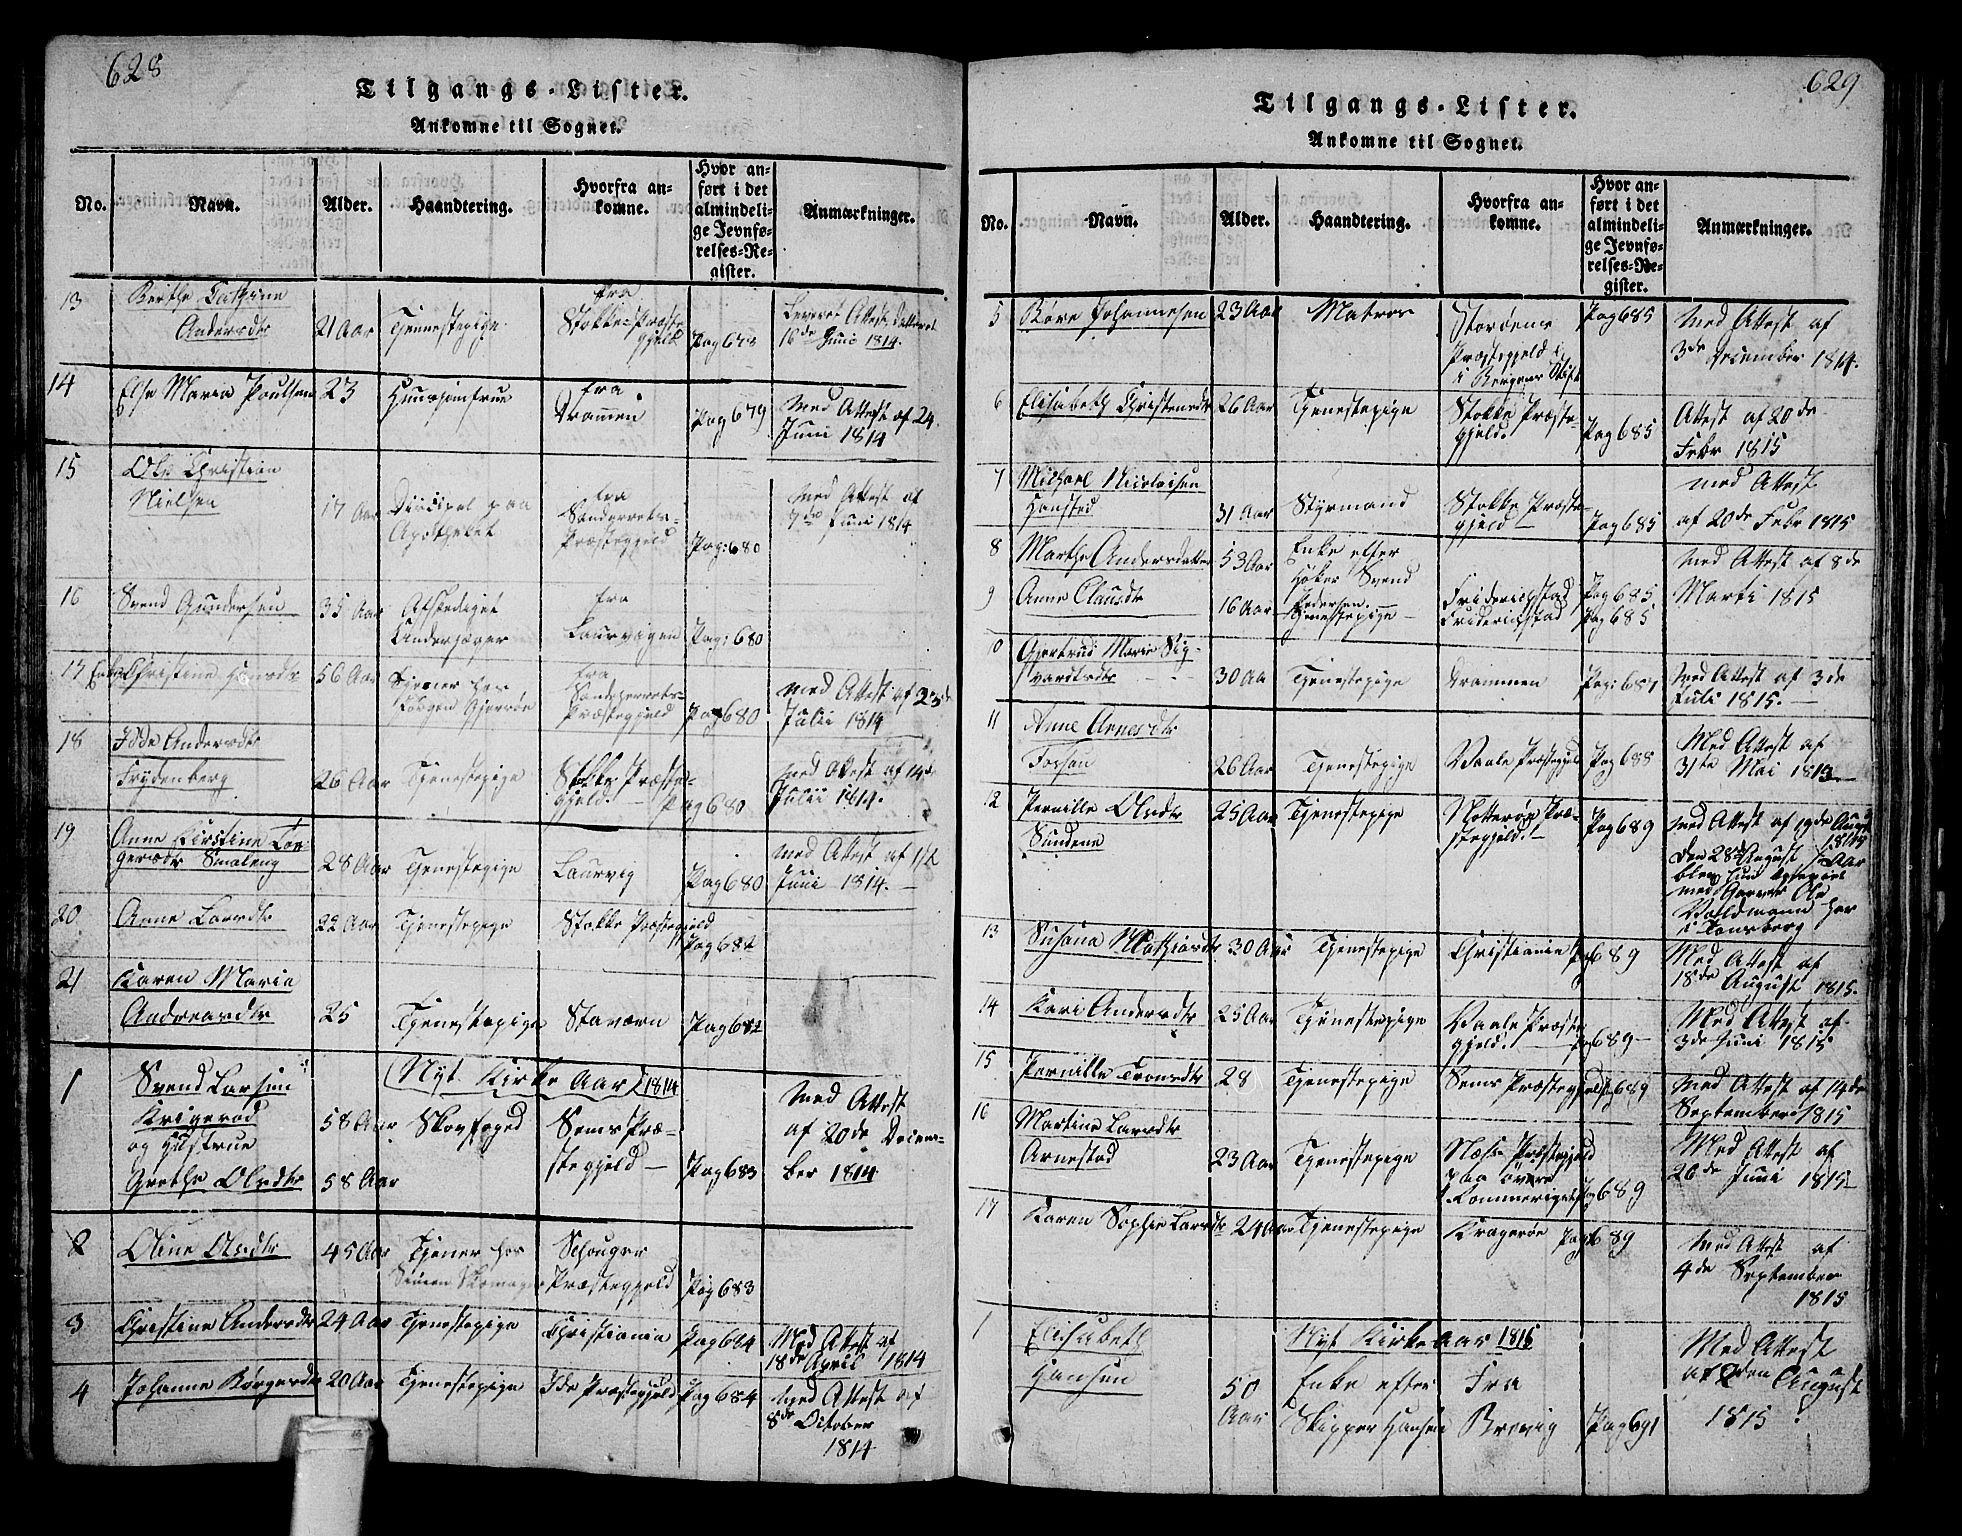 628
Tilgangs-Lister.
Ankomne til Sognet.
No.
Navn.
Alder.
Haandtering.
Hvorfra an-
komne.
Hvor an-
ført i det
almindeli-
ge Jevnfø-
relses-Re-
gister.
Anmærkninger.
13
Berthe Cathrine
Andersdtr
21 Aar
Tjenestepige
fra
Stokke Præste
gjeld
Pag 678
Leveret Attest dateret
16de Juni 1814.
14
Else Maria Poulsen
23
Huusjomfrue
fra
Dramen
Pag 679
Med Attest af 24
Juni 1814
15
Ole Christian
Nielsen
17 Aar
Discipel paa
Apotheket
fra
Sandherreds
Præstegjeld
Pag: 680
Med Attest af
7de Juni 1814
16
Svend Gundersen
35 Aar
Afskediget
Underjæger
fra
Laurvigen
Pag: 680
17
Enke Christine Hansdtr
56 Aar
Tjener hos
Gjerrøe
fra
Sandeherreds
Præstegjeld
Pag 680
Med Attest af 23de
Julii 1814
18
Andersdtr
Frydenberg
26 Aar
Tjenestepige
Stokke Præste
gjeld.
Pag 680
Med Attest af 14de
Julii 1814.
19
Anne Kirstine Tor
gersdtr Smaleng
28 Aar
Tjenestepige
Laurvig
Pag 680
Med Attest af
Juni 1814.
20
Anne Larsdtr
22 Aar
Tjenestepige
Stokke Præstegjeld
Pag 682
21
Karen Maria
Andreasdtr
25
Tjenestepige
Staværn
Pag 682
Nyt Kirke Aar 1814
1
Svend Larsen
Krigerød
og Hustrue
Grethe Olsdtr
58 Aar
58 Aar
Skovfoged
Sems Præ-
stegjeld
Pag 683
Med Attest
af 20de Decem-
ber 1814
2
Oline Olsdtr
45 Aar
Tjener hos
Schouger
Præstegjeld
Pag 683
3
Christine Andersdtr
24 Aar
Tjenestepige
Christiania
Pag 684
Med Attest af
18de April 1814
4
Johanne Børgersdtr
20 Aar
Tjenestepige
Ide Præstegjeld
Pag 684
Med Attest af
8de October
1814
629
Tilgangs-Lister.
Ankomne til Sognet.
No.
Navn.
Alder.
Haandtering.
Hvorfra an-
komne.
Hvor an-
ført i det
almindeli-
ge Jevnfø-
relses-Re-
gister.
Anmærkninger.
5
Børe Johannesen
23 Aar
Matros
Stordøens
Præstegjeld
i Bergens Stift
Pag 685
Med Attest af
3de December 1814.
6
Elisabeth Christensdtr
26 Aar
Tjenestepige
Stokke Præste
gjeld.
Pag 685
Attest af 20de
Febr 1815
7
Michael Nicolaisen
Hansted
31 Aar
Styrmand
Stokke Præste-
gjeld
Pag 685
Med Attest
af 20de Febr 1815
8
Marthe Andersdatter
53 Aar
Enke efter
Høker Svend
Pedersen
Friderichstad
Pag 685
Med Attest af 8de
Marti 1815
9
Anne Clausdtr
16 Aar
Tjenestepige
Friderichstad
Pag 685
10
Gjertrud Marie Sig-
vardtsdtr
30 Aa
Tjenestepige
Drammen
Pag: 687
Med Attest af 3de
Juli 1815.
11
Anne Arnesdtr
Fossan
26 Aar
Tjenestepige
Vaale Præstegjeld
Pag 688
Med Attest af
31te Mai 1815
12
Pernille Olsdtr
Sundene
25 Aar
Tjenestepige
Nøtterøe Præ-
stegjeld.
Pag 689
Med Attest af 19de Aug
1815
Den 28de August
blev hun
med Ole
Valdmann her
i Tønsberg
13
Susana Mathiasdtr
30 Aar
Tjenestepige
Christiania
Pag 689
Med Attest af
18de August 1815.
14
Kari Andersdtr
25 Aar
Tjenestepige
Vaale Præste
gjeld.
Pag 689
Med Attest af
3de Juni 1815
15
Pernille Tronsdtr
28
Tjenestepige
Sems Præstegjeld
Pag 689
Med Attest af 14de
September 1815
16
Martine Larsdtr
Arnestad
23 Aar
Tjenestepige
Næss Præstegjeld
paa Øvre
Rommerige
Pag 689
Med Attest af
26de Juni 1815
17
Karen Sophie Larsdtr
24 Aar
Tjenestepige
Kragerøe
Pag 689
Med Attest af
4de September
1815
Nyt Kirke Aar 1815
1
Elisabeth
Hansen
50
Aar
Enke efter
Skipper Hansen
Fra
Brevig
Pag 691
Med Attest
af 2den August
1815.